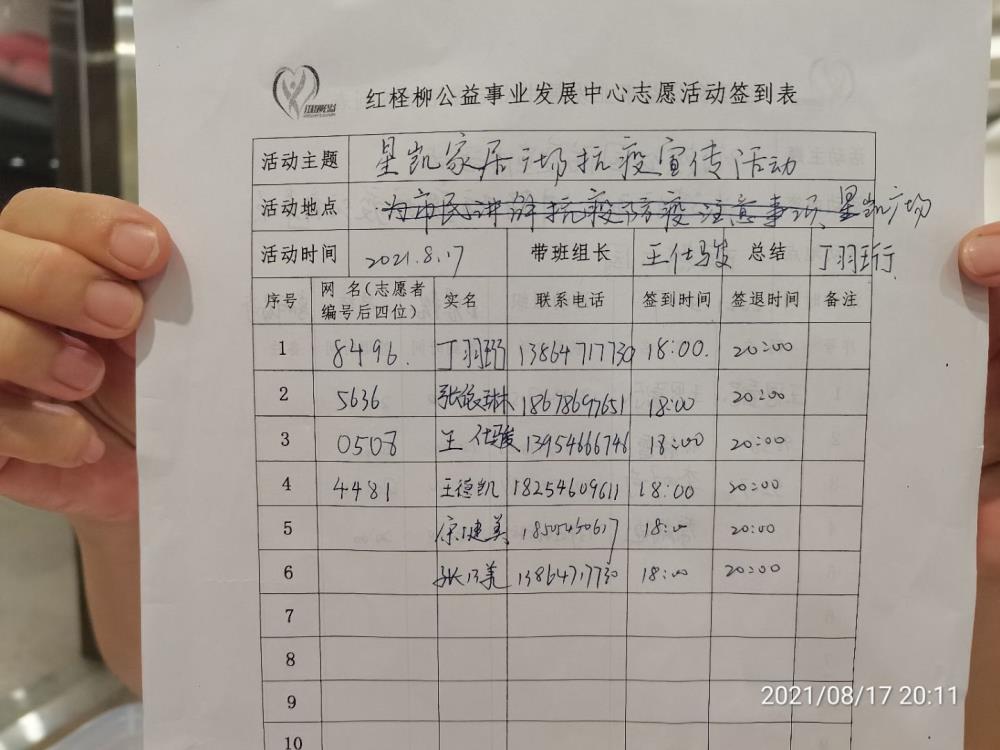 红柽柳公益事业发展中心志愿活动签到表
活动主题 星凯家居广场抗疫宣传活动
活动地点 为市民讲解抗疫防疫注意事项 星凯广场
活动时间 2021.8.17 带班组长 王仕骏 总结 丁羽珩
序号 网名(志愿者编号后四位) 实名 联系电话 签到时间 签退时间 备注
1 8496. 丁羽珩 13864717730 18:00. 20:00
2 5636 张 琳 18678697651 18:00 20:00
3 0508 王仕骏 13954666746 18:00 20:00
4 4481 王德凯 18254609611 18:00 20:00
5 美 18:00 20:00
6 美 13864717730 18:00 20:00
7
8
9
10
2021/08/17 20:11